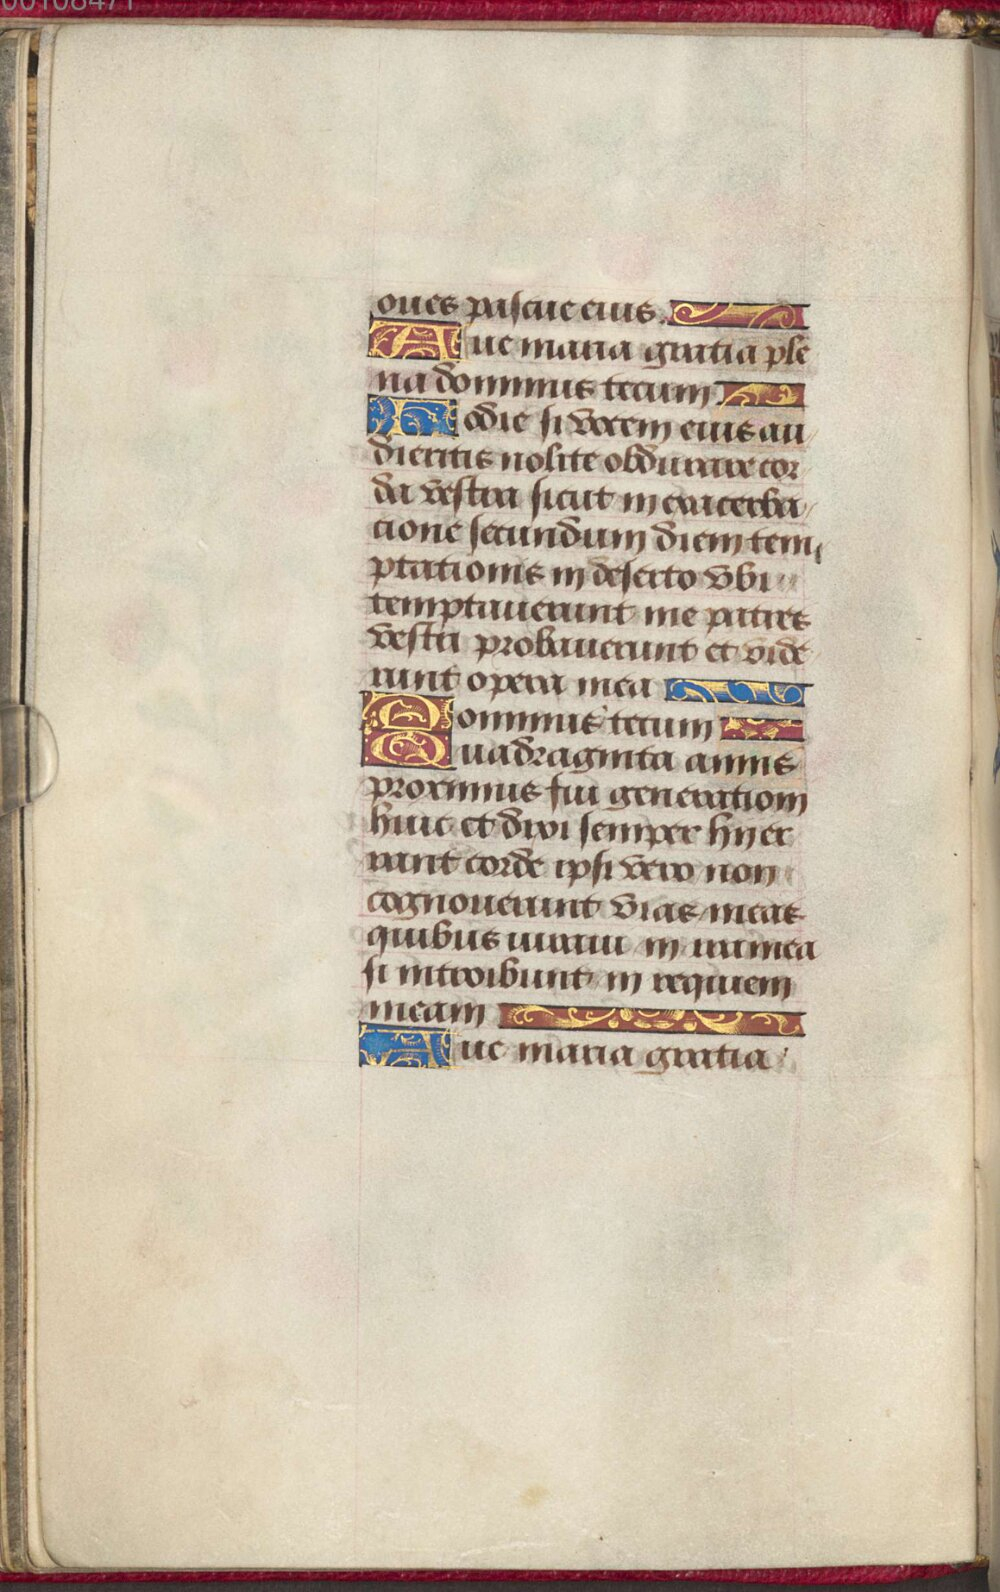 00108471
oues pascue eius.
Aue maria gratia ple
na dominus tecum
Hodie si vocem eius au
dieritis nolite obdurare cor
da vestra sicut in exacerba
cione secundum diem tem
ptationis in deserto vbi
temptauerunt me patres
vestri probauerunt et vide
runt opera mea
Dominus tecum
Quadraginta annis
proximus fui generationi
huic et dixi semper hij er
rant corde ipsi vero non
cognouerunt vias meas
quibus iuraui in ira mea
si introibunt in requiem
meam
Aue maria gratia